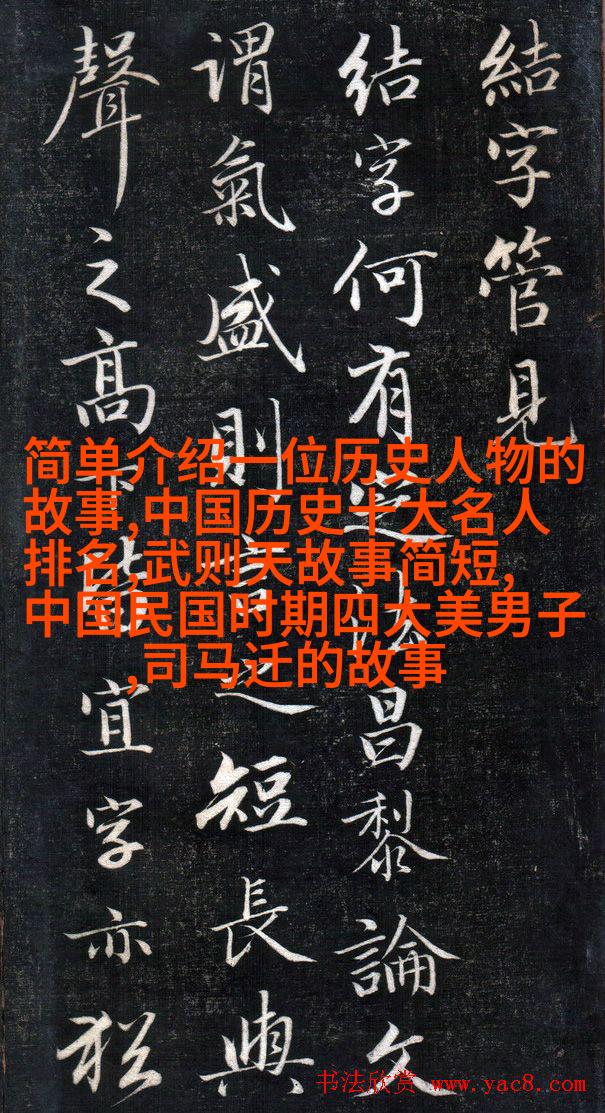 結字管見
結字何有定法昌黎論文
謂氣盛則言之短長與
聲之高下皆宜字亦猶
简单介绍一位历史人物的
故事,中国历史十大名人
排名,武则天故事简短,
中国民国时期四大美男子
,司马迁的故事
书法欣赏 www.yac8.com